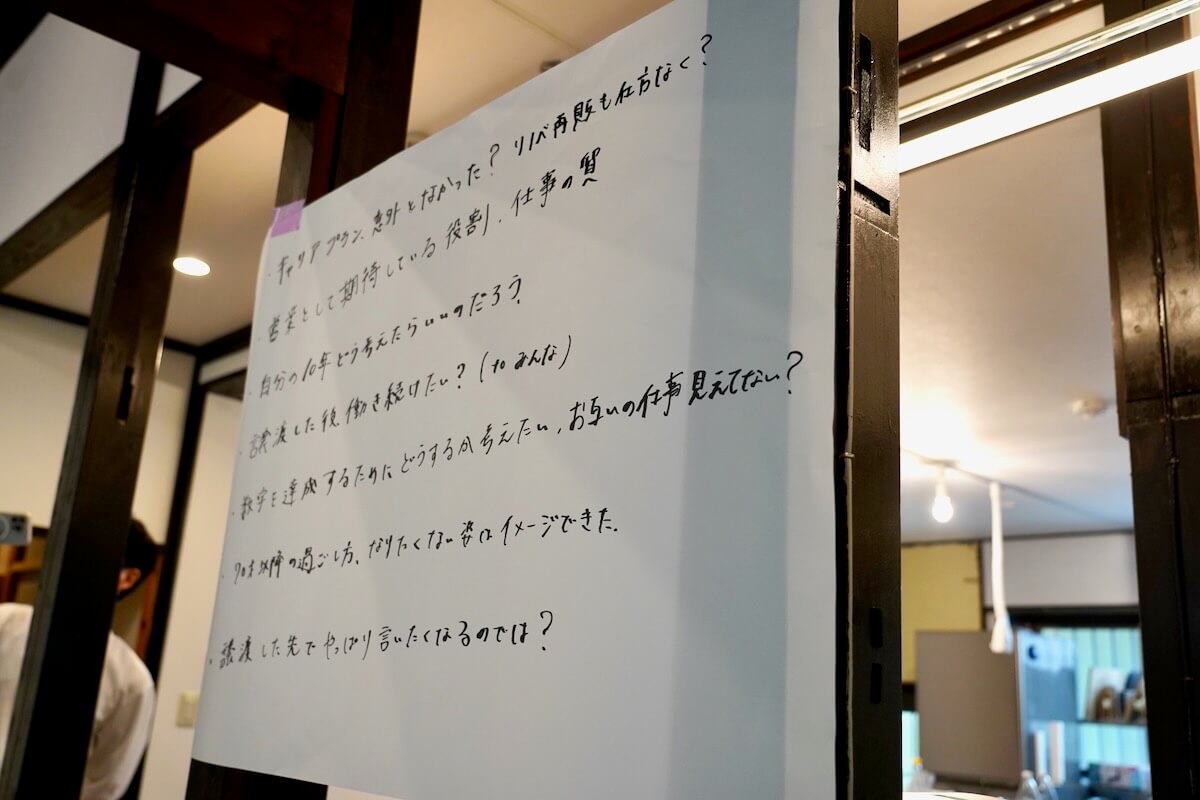 ・キャリアプラン、意外となかった？リノベ再販も仕方なく？
・営業として期待している役割、仕事の質
・自分の10年どう考えたらいいのだろう？
・譲渡した後働き続けたい？(to みんな)
・数字を達成するためにどうするか考えたい、お互いの仕事見えてない？
・70才以降の過ごし方、なりたくない姿はイメージできた。
・譲渡した先でやっぱり言いたくなるのでは？